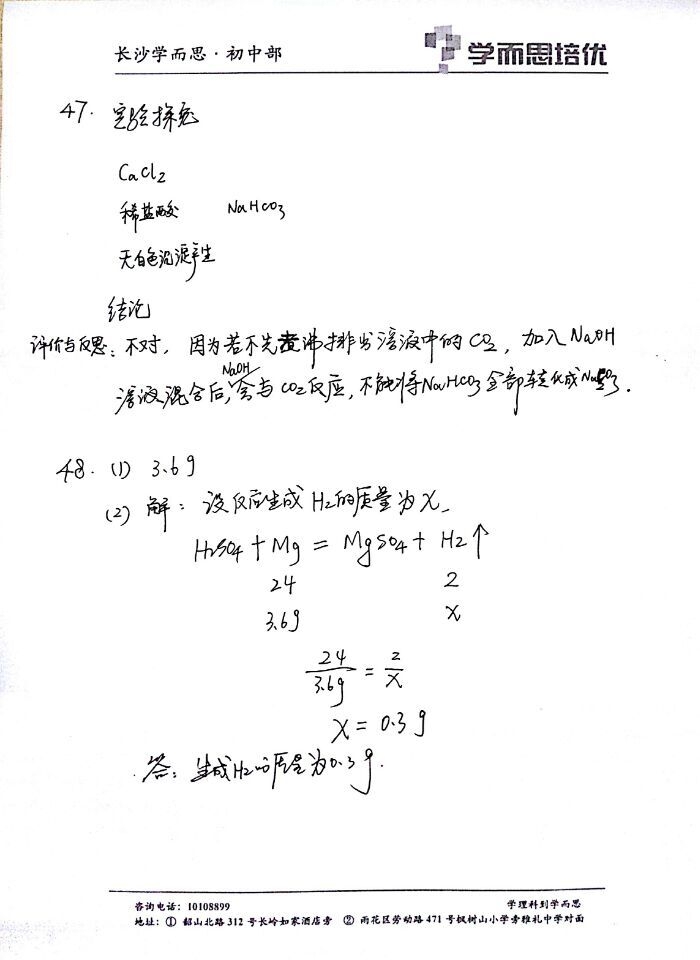 长沙学而思·初中部
学而思培优
47. 实验探究
CaCl2
稀盐酸 NaHCO3
无白色沉淀产生
结论
评价与反思: 不对, 因为若不先煮沸排出溶液中的CO2, 加入NaOH
溶液混合后, NaOH会与CO2反应, 不能将NaHCO3全部转化成Na2CO3.
48. (1) 3.6g
(2) 解: 设反应生成H2的质量为x.
H2SO4 + Mg = MgSO4 + H2↑
24 2
3.6g x
24/3.6g = 2/x
x = 0.3g
答: 生成H2的质量为0.3g.
咨询电话: 10108899 学理科到学而思
地址: ① 韶山北路 312 号长岭如家酒店旁 ② 雨花区劳动路 471 号枫树山小学旁雅礼中学对面